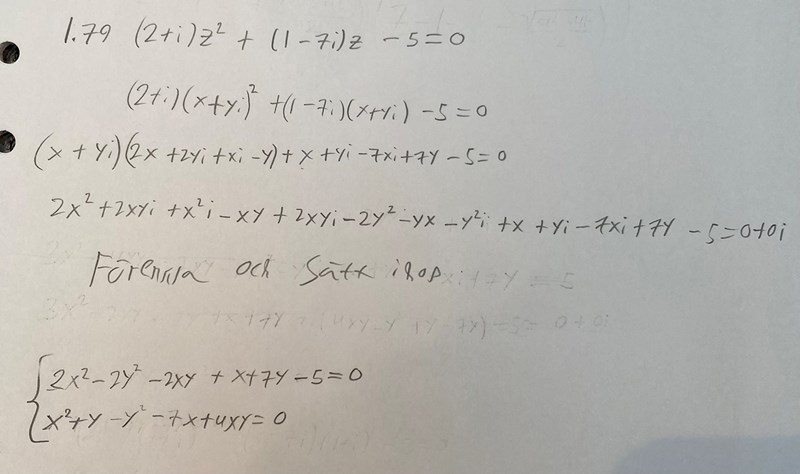 1.79 (2+i)z² + (1-7i)z - 5 = 0
(2+i)(x+yi)² + (1-7i)(x+yi) - 5 = 0
(x + yi)(2x + 2yi + xi - y) + x + yi - 7xi + 7y - 5 = 0
2x² + 2xyi + x²i - xy + 2xyi - 2y² - yx - y²i + x + yi - 7xi + 7y - 5 = 0+0i
Förenkla och Sätt ihop
2x² - 2y² - 2xy + x + 7y - 5 = 0
x² + y - y² - 7x + 4xy = 0